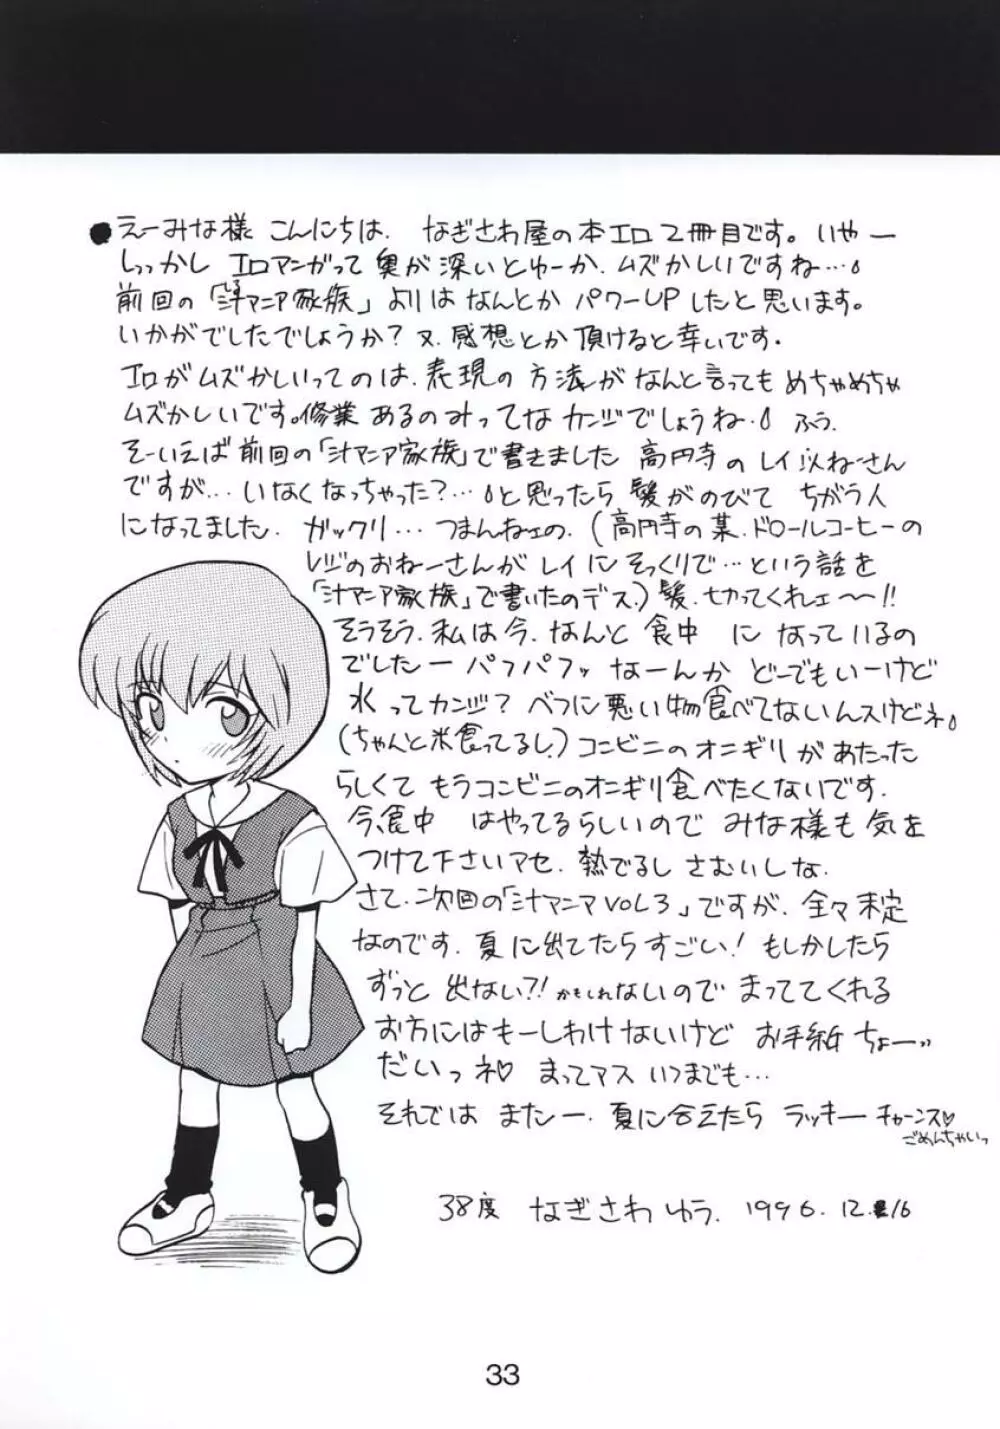 ●えーみな様 こんにちは、 なぎさわ屋の本エロ2冊目です。いやー
しっかし エロマンガって 奥が 深いとゆーか、ムズかしいですね…
前回の「汁マニア家族」よりは なんとか パワーUPしたと思います。
いかがでしたでしょうか? 又、感想とか頂けると幸いです.
エロがムズかしいってのは、表現の方法がなんと言ってもめちゃめちゃ
ムズかしいです。修業あるのみってなカンジでしょうね. ふう.
そーいえば前回の「汁マニア家族」で書きました 高円寺のレイ似ねーさん
ですが… いなくなっちゃった?…と思ったら髪がのびて ちがう人
になってました. ガックリ… つまんねェの.(高円寺の某.ドロールコーヒーの
レジのおねーさんがレイにそっくりで…という話を
「汁マニア家族」で書いたのデス.)髪、切ってくれェ〜!!
そうそう.私は今、なんと食中 に なっているの
でしたー パフパフッ なーんか どーでもいーけど
水ってカンジ? ベツに悪い物食べてないんスけどネ。
(ちゃんと米食ってるし.)コンビニのオニギリがあたった
らしくて もうコンビニのオニギリ食べたくないです.
今、食中 はやってるらしいので みな様も気を
つけて下さいマセ. 熱でるし さむいしな.
さて.次回の「汁マニア VOL3」ですが、全々未定
なのです.夏に出てたらすごい!もしかしたら
ずっと 出ない?!かもしれないので まっててくれる
お方にはもーしわけないけど お手紙 ちょーッ
だいっネ♡ まってマス いつまでも…
それでは またー. 夏に会えたら ラッキー チャーンス♡
ごめんちゃいっ
38度 なぎさわ ゆう. 1996.12.16
33